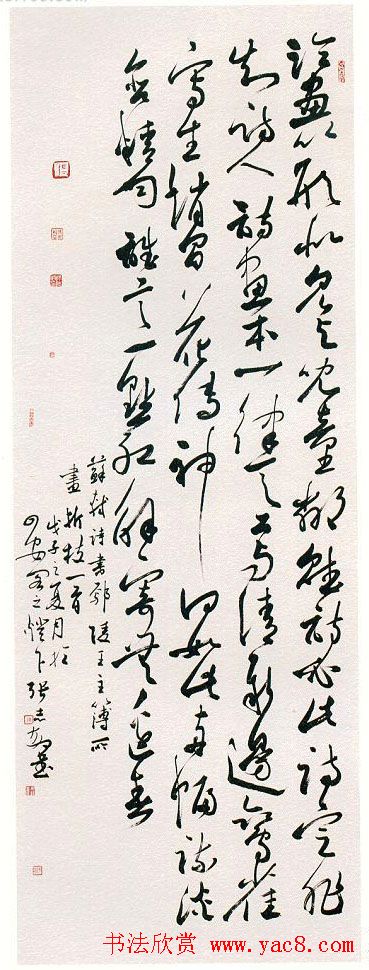 論畫以形似見與兒童鄰賦詩必此詩定非
知詩人詩畫本一律天工與清新邊鸞雀
寫生趙昌花傳神何如此兩幅疏淡
含精勻誰言一點紅解寄無邊春
蘇軾詩書鄢陵王主簿所
畫折枝一首
戊子之夏月於
之燈下張志
书法欣赏 www.yac8.com